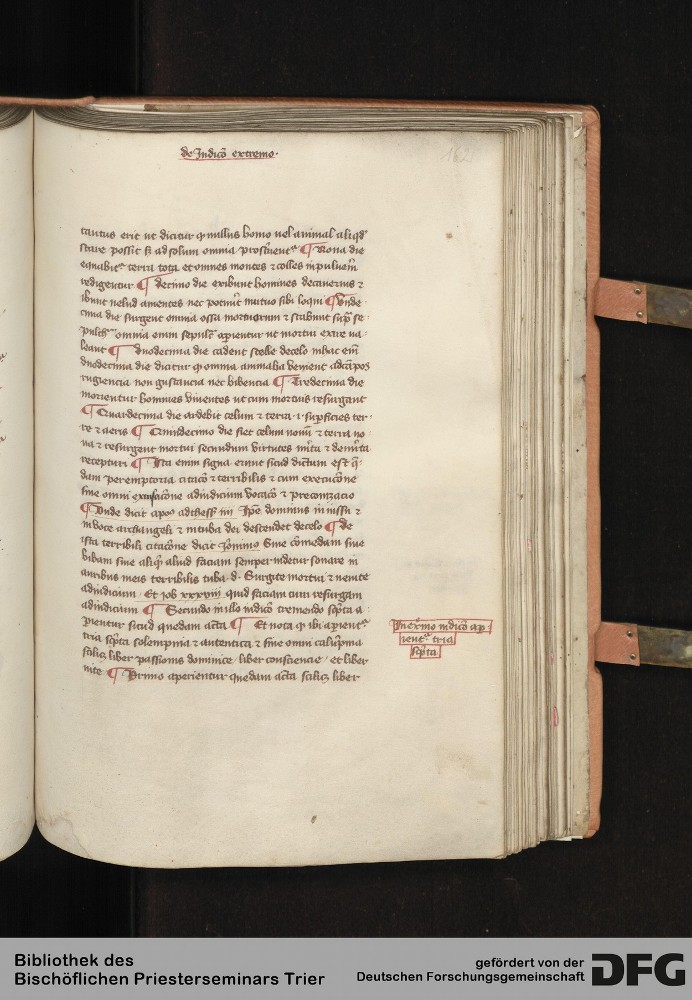 de Iudicio extremo
162
tantus erit ut dicitur qꝫ nullus homo uel animal aliqd
stare possit sꝫ ad solum omnia prosternentᷣ ¶ Nona die
equabitᷣ terra tota et omnes montes ⁊ colles in puluerem
redigentur ¶ decimo die exibunt homines de cauernis ⁊
ibunt uelud amentes nec poterunt mutuo sibi loqui ¶ Unde
cima die surgent omnia ossa mortuorum ⁊ stabunt sup se
pulchra omnia enim sepulcra apientur ut mortui exire ua
leant ¶ duodecima die cadent stelle de celo in hac eni
duodecima die dicitur qꝫ omnia animalia venient ad campos
rugiencia non gustancia nec bibencia ¶ Tredecima die
morientur homines viuentes ut cum mortuis resurgant
¶ Quardecima die ardebit celum ⁊ terra .i. supficies ter
re ⁊ aeris ¶ Quindecimo die fiet celum nouū ⁊ terra no
ua ⁊ resurgent mortui secundum virtutes
recepturi ¶ Ista enim signa erunt sicud dictum est q̄
dam peremptoria citacō ⁊ terribilis ⁊ cum execucōne
siue omni ad iudicium vocacō ⁊ preconizacio
¶ Unde dicit aposꝰ ad thess iiii Ipse dominus in iussu ⁊
in uoce archangeli ⁊ in tuba dei descendet de celo ¶ de
ista terribili citacōne dicit Ieronimo Siue cōmedam siue
bibam siue aliqꝫ aliud faciam semper uidetur sonare in
auribus meis terribilis tuba .d. Surgite mortui ⁊ uenite
ad iudicium Et iob xxxviii quid faciam cum resurgam
ad iudicium ¶ Secundo in illo iudicō tremendo scpta a
pientur sicud quedam acta ¶ Et nota qꝫ ibi apientᷣ
tria scpta solempnia ⁊ autentica ⁊ sine omni calūpnia
scilicꝫ liber passionis dominice / liber consciencie / et liber
uite ¶ Primo aperientur quedam acta scilicꝫ liber
In extmo iudicō ap
ientᷣ tria
scpta
Bibliothek des
Bischöflichen Priesterseminars Trier
gefördert von der
Deutschen Forschungsgemeinschaft
DFG